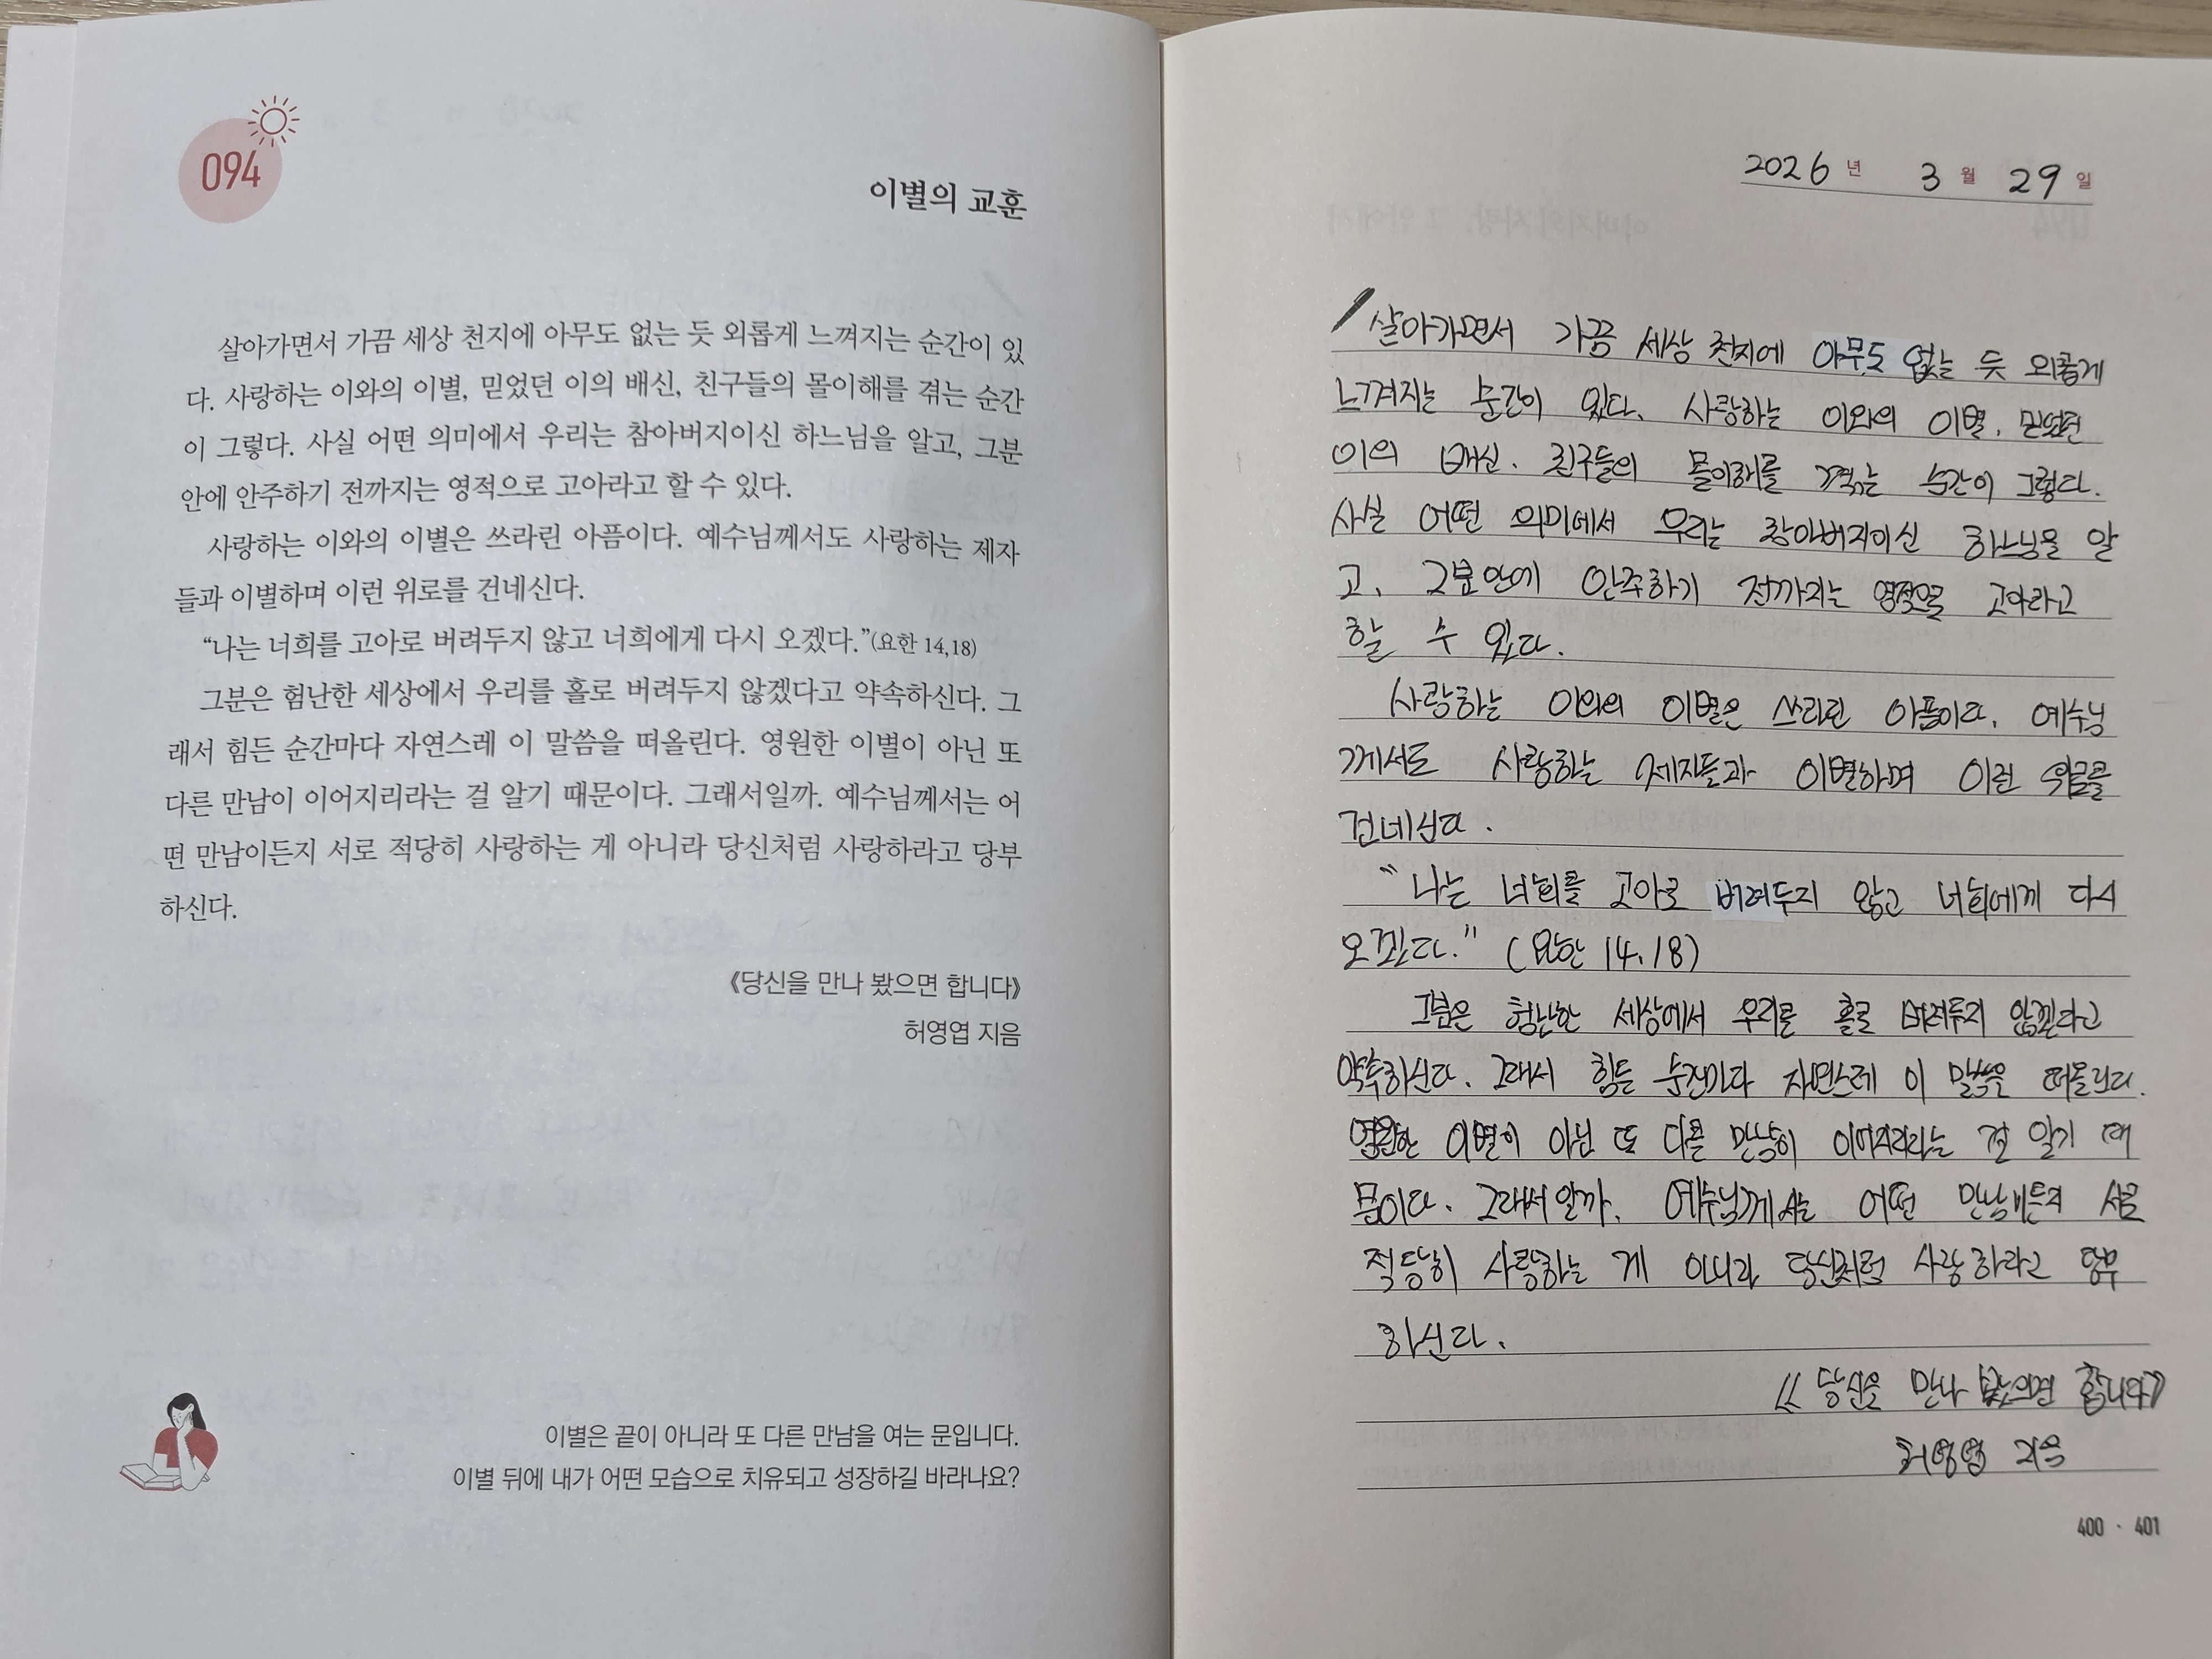 094
이별의 교훈
살아가면서 가끔 세상 천지에 아무도 없는 듯 외롭게 느껴지는 순간이 있
다. 사랑하는 이와의 이별, 믿었던 이의 배신, 친구들의 몰이해를 겪는 순간
이 그렇다. 사실 어떤 의미에서 우리는 참아버지이신 하느님을 알고, 그분
안에 안주하기 전까지는 영적으로 고아라고 할 수 있다.
사랑하는 이와의 이별은 쓰라린 아픔이다. 예수님께서도 사랑하는 제자
들과 이별하며 이런 위로를 건네신다.
“나는 너희를 고아로 버려두지 않고 너희에게 다시 오겠다.”(요한 14,18)
그분은 험난한 세상에서 우리를 홀로 버려두지 않겠다고 약속하신다. 그
래서 힘든 순간마다 자연스레 이 말씀을 떠올린다. 영원한 이별이 아닌 또
다른 만남이 이어지리라는 걸 알기 때문이다. 그래서일까. 예수님께서는 어
떤 만남이든지 서로 적당히 사랑하는 게 아니라 당신처럼 사랑하라고 당부
하신다.
《당신을 만나 봤으면 합니다》
허영엽 지음
이별은 끝이 아니라 또 다른 만남을 여는 문입니다.
이별 뒤에 내가 어떤 모습으로 치유되고 성장하길 바라나요?
2026 년 3 월 29 일
살아가면서 가끔 세상 천지에 아무도 없는 듯 외롭게
느껴지는 순간이 있다. 사랑하는 이와의 이별, 믿었던
이의 배신, 친구들의 몰이해를 겪는 순간이 그렇다.
사실 어떤 의미에서 우리는 참아버지이신 하느님을 알
고, 그분안에 안주하기 전까지는 영적으로 고아라고
할 수 있다.
사랑하는 이와의 이별은 쓰라린 아픔이다. 예수님
께서도 사랑하는 제자들과 이별하며 이런 위로를
건네신다.
"나는 너희를 고아로 버려두지 않고 너희에게 다시
오겠다." (요한 14,18)
그분은 험난한 세상에서 우리를 홀로 버려두지 않겠다고
약속하신다. 그래서 힘든 자연스레 이 말씀은 떠올린다.
영원한 이별이 아닌 또 다른 만남이 이어지리라는 걸 알기 때
문이다. 그래서일까. 예수님께서는 어떤 만남이든지 서로
적당히 사랑하는 게 아니라 당신처럼 사랑하라고 당부
하신다.
《당신을 만나 봤으면 합니다》
허영엽 지음
400 · 401